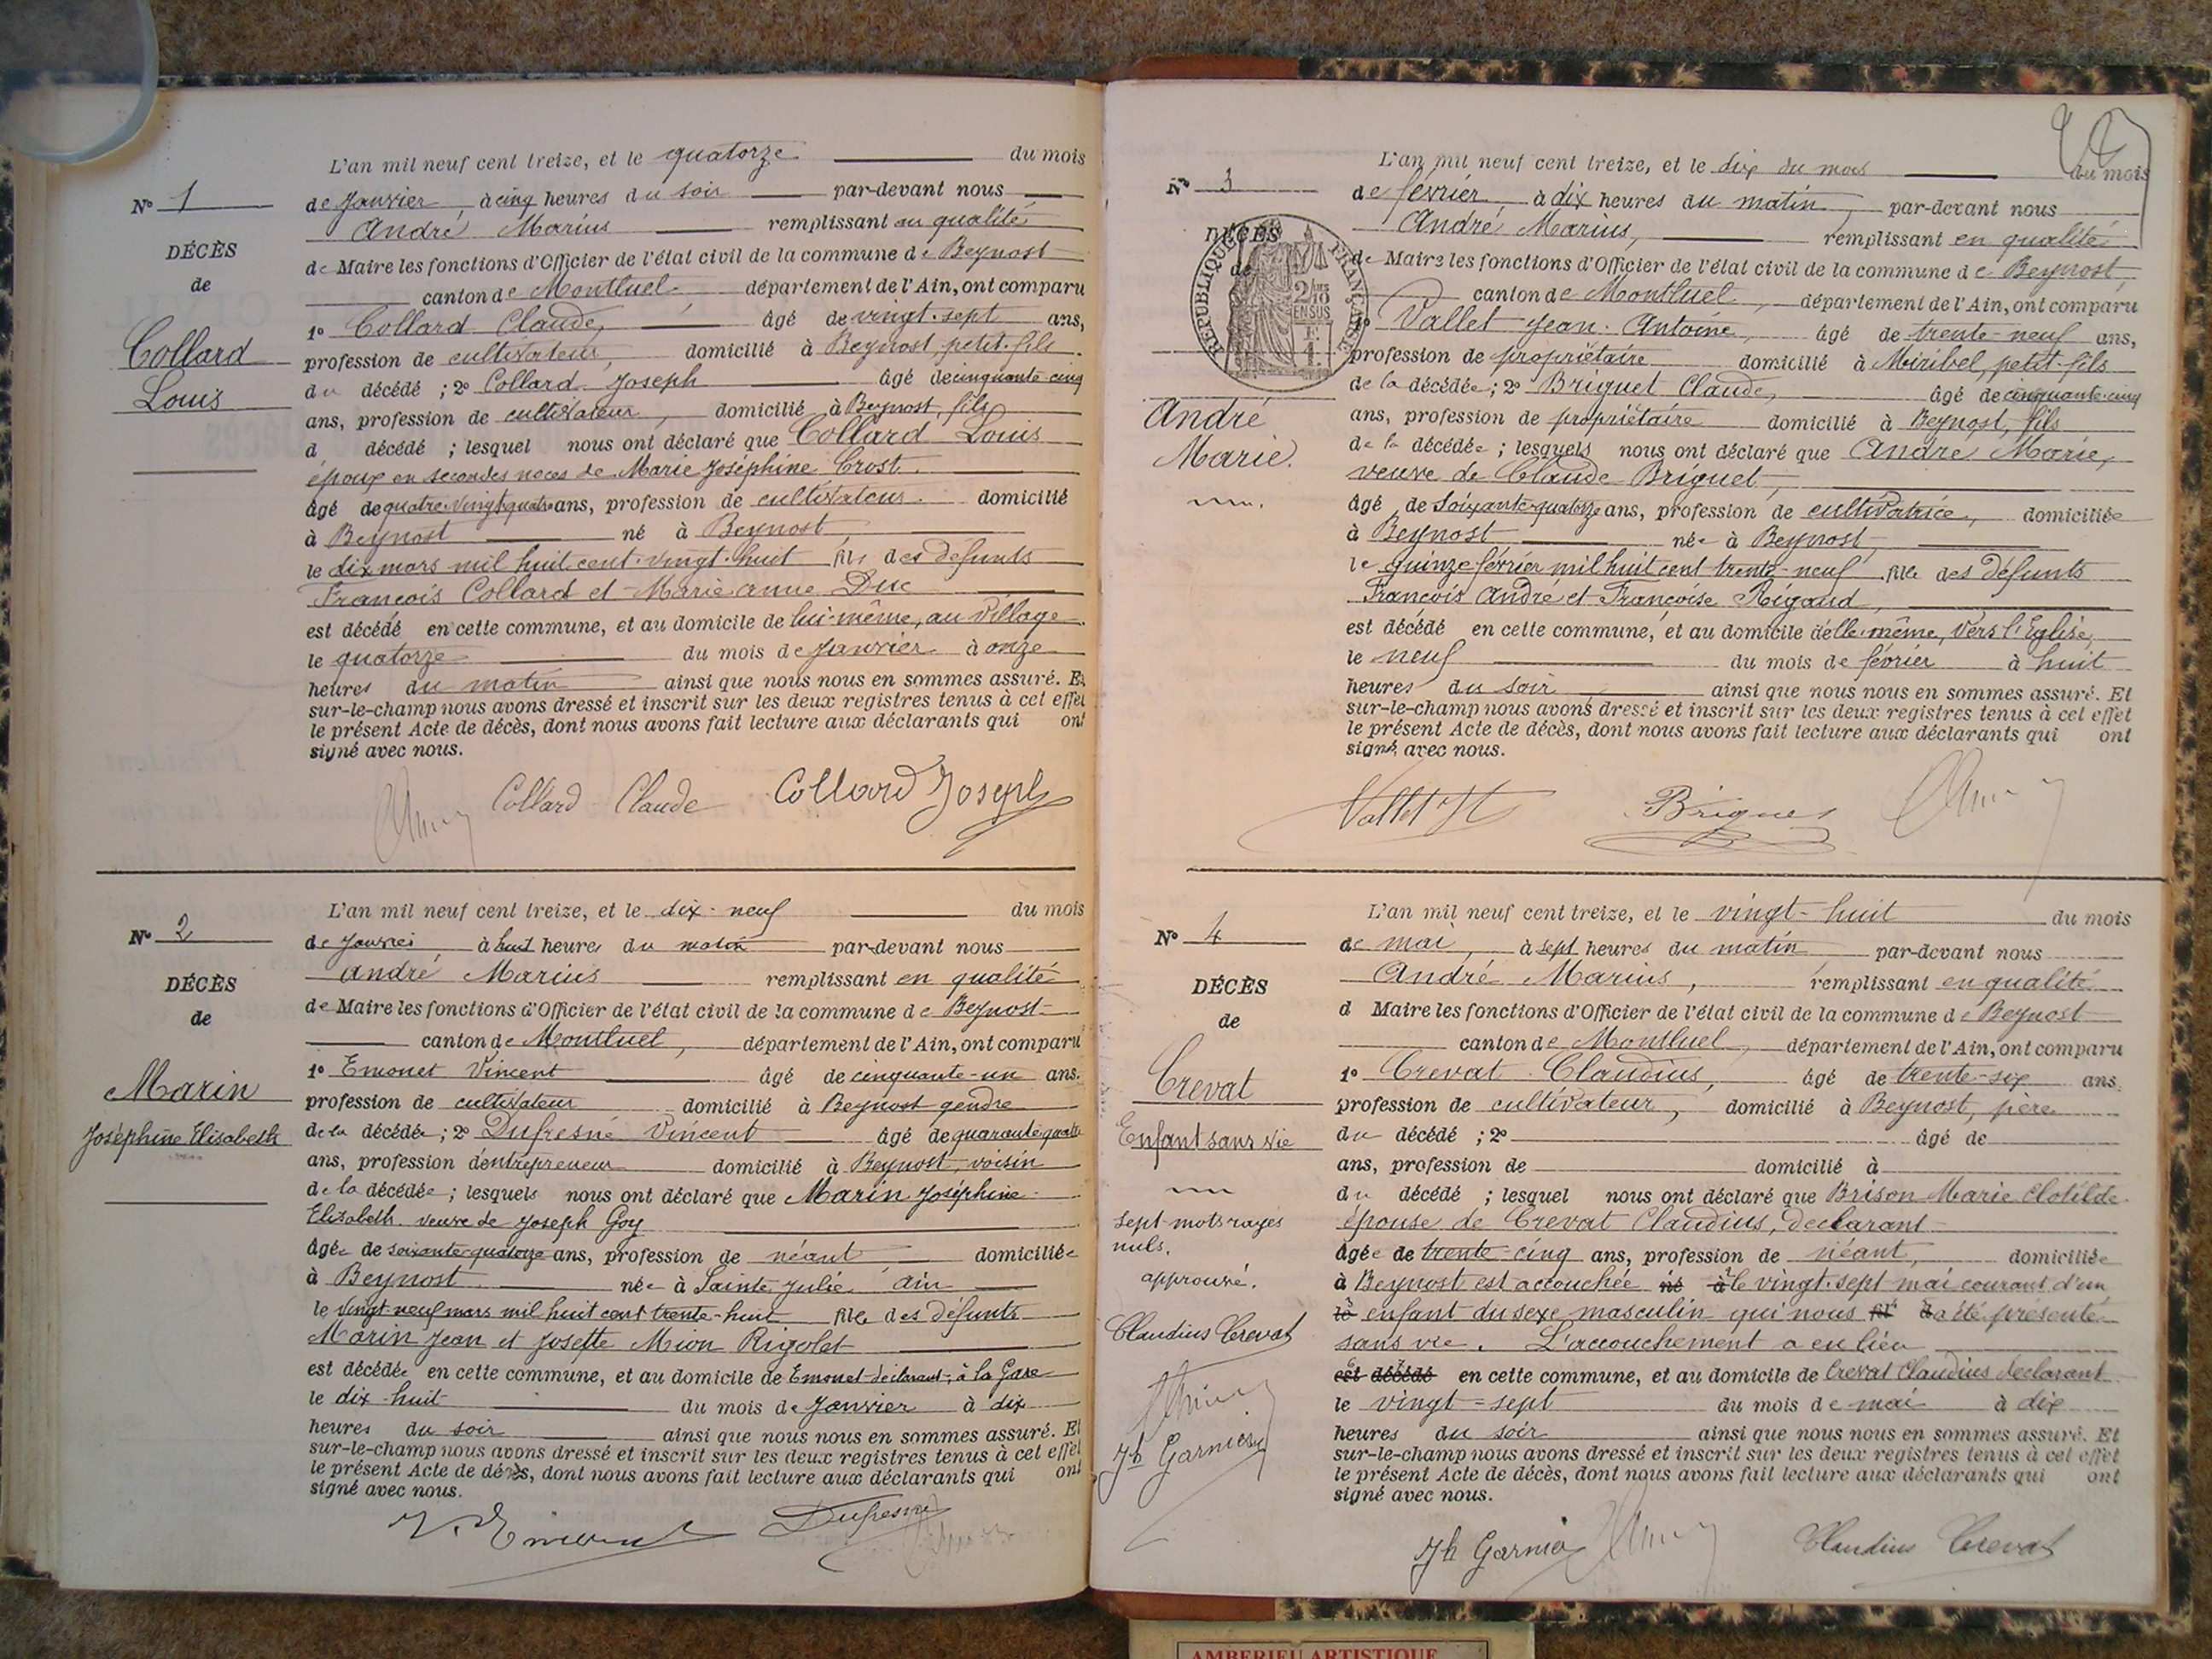 L'an mil neuf cent treize, et le quatorze du mois
N° 1
de Janvier à cinq heures du soir par-devant nous
André Marius remplissant en qualité
DÉCÈS
de
de Maire les fonctions d'Officier de l'état civil de la commune de Beynost
canton de Montluel département de l'Ain, ont comparu
1° Collard Claude, âgé de vingt-sept ans,
Collard
Louis
profession de cultivateur, domicilié à Beynost, petit-fils
du décédé ; 2° Collard Joseph âgé de cinquante-cinq
ans, profession de cultivateur, domicilié à Beynost, fils
d décédé ; lesquel nous ont déclaré que Collard Louis
époux en secondes noces de Marie Joséphine Crost.
âgé de quatre-vingt-quatre ans, profession de cultivateur. domicilié
à Beynost né à Beynost
le dix mars mil huit cent vingt-huit fils des défunts
François Collard et Marie anne Duc
est décédé en cette commune, et au domicile de lui-même, au Village
le quatorze du mois de Janvier à onze
heures du matin ainsi que nous nous en sommes assuré. Et
sur-le-champ nous avons dressé et inscrit sur les deux registres tenus à cet effet
le présent Acte de décès, dont nous avons fait lecture aux déclarants qui ont
signé avec nous.
Collard Claude Collard Joseph
L'an mil neuf cent treize, et le dix-neuf du mois
N° 2
de Janvier à huit heures du matin par-devant nous
André Marius remplissant en qualité
DÉCÈS
de
de Maire les fonctions d'Officier de l'état civil de la commune de Beynost
canton de Montluel, département de l'Ain, ont comparu
1° Emonet Vincent âgé de cinquante-un ans.
Marin
Joséphine Elisabeth
profession de cultivateur domicilié à Beynost gendre
de la décédée ; 2° Dufresne Vincent âgé de quarante quatre
ans, profession d'entrepreneur domicilié à Beynost, voisin
de la décédée ; lesquels nous ont déclaré que Marin Joséphine
Elisabeth veuve de Joseph Goy
âgée de soixante-quatorze ans, profession de néant domiciliée
à Beynost née à Sainte Julie Ain
le vingt-neuf mars mil huit cent trente-huit fille des défunts
Marin Jean et Josette Mion Rigolet
est décédée en cette commune, et au domicile de Emonet déclarant, à la Gare
le dix-huit du mois de Janvier à dix
heures du soir ainsi que nous nous en sommes assuré. Et
sur-le-champ nous avons dressé et inscrit sur les deux registres tenus à cet effet
le présent Acte de décès, dont nous avons fait lecture aux déclarants qui ont
signé avec nous.
Dufresne
L'an mil neuf cent treize, et le dix du mois du mois
N° 3
de février, à dix heures du matin, par-devant nous
André Marius, remplissant en qualité
DÉCÈS
de
RÉPUBLIQUE FRANÇAISE
2/10 EN SUS
de Maire les fonctions d'Officier de l'état civil de la commune de Beynost
canton de Montluel, département de l'Ain, ont comparu
1° Vallet Jean-Antoine, âgé de trente-neuf ans,
profession de propriétaire domicilié à Miribel, petit-fils
de la décédée ; 2° Briguet Claude, âgé de cinquante-cinq
André
Marie.
ans, profession de propriétaire domicilié à Beynost, fils
de la décédée ; lesquels nous ont déclaré que André Marie,
veuve de Claude Briguet,
âgé de soixante-quatorze ans, profession de cultivatrice, domiciliée
à Beynost née à Beynost,
le quinze février mil huit cent trente-neuf fille des défunts
François André et Françoise Rigaud,
est décédé en cette commune, et au domicile d'elle-même, Vers l'Eglise,
le neuf du mois de février à huit
heures du soir ainsi que nous nous en sommes assuré. Et
sur-le-champ nous avons dressé et inscrit sur les deux registres tenus à cet effet
le présent Acte de décès, dont nous avons fait lecture aux déclarants qui ont
signé avec nous.
Vallet Briguet
L'an mil neuf cent treize, et le vingt-huit du mois
N° 4
de mai, à sept heures du matin par-devant nous
André Marius, remplissant en qualité
DÉCÈS
de
d Maire les fonctions d'Officier de l'état civil de la commune de Beynost
canton de Montluel, département de l'Ain, ont comparu
1° Crevat Claudius, âgé de trente-six ans.
Crevat
Enfant sans vie
profession de cultivateur, domicilié à Beynost, père
du décédé ; 2° âgé de
ans, profession de domicilié à
du décédé ; lesquel nous ont déclaré que Brison Marie Clotilde
épouse de Crevat Claudius, déclarant
âgée de trente-cinq ans, profession de néant, domiciliée
à Beynost est accouchée né à le vingt-sept mai courant d'un
le enfant du sexe masculin qui nous fil d a été présenté
sans vie. L'accouchement a eu lieu
est décédé en cette commune, et au domicile de Crevat Claudius déclarant
le vingt-sept du mois de mai à dix
heures du soir ainsi que nous nous en sommes assuré. Et
sur-le-champ nous avons dressé et inscrit sur les deux registres tenus à cet effet
le présent Acte de décès, dont nous avons fait lecture aux déclarants qui ont
signé avec nous.
sept mots rayés
nuls.
approuvé.
Claudius Crevat
Jh Garnier
Jh Garnier Claudius Crevat
AMBERIEU ARTISTIQUE